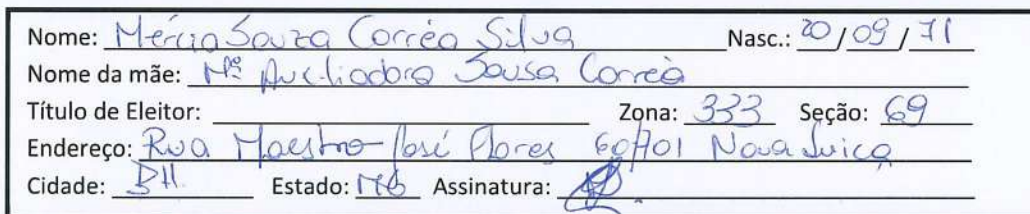 Nome: Mércia Souza Corrêa Silva Nasc.: 20/09/71
Nome da mãe: Mª Auxiliadora Sousa Corrêa
Título de Eleitor: Zona: 333 Seção: 69
Endereço: Rua Maestro José Flores 60/101 Nova Suiça
Cidade: BH. Estado: MG Assinatura: